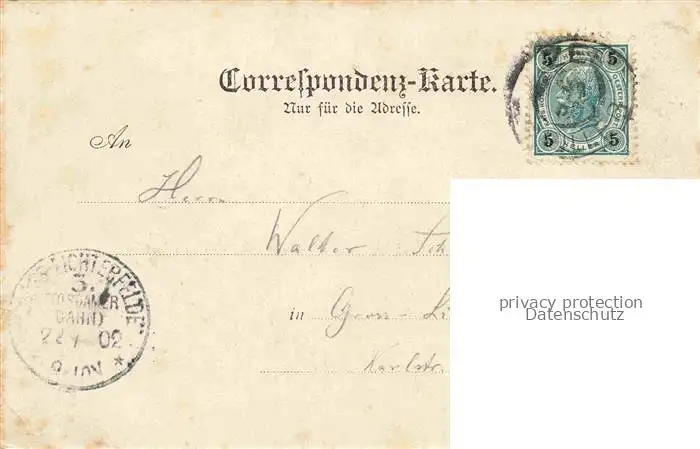 Correspondenz-Karte.
Nur für die Adresse.
5 5
5 5
An
Herrn
Walter Sch
in Gross-Li
Karlstr.
LICHTERFELDE
3.
(POTSDAMER
BAHN)
02
privacy protection
Datenschutz